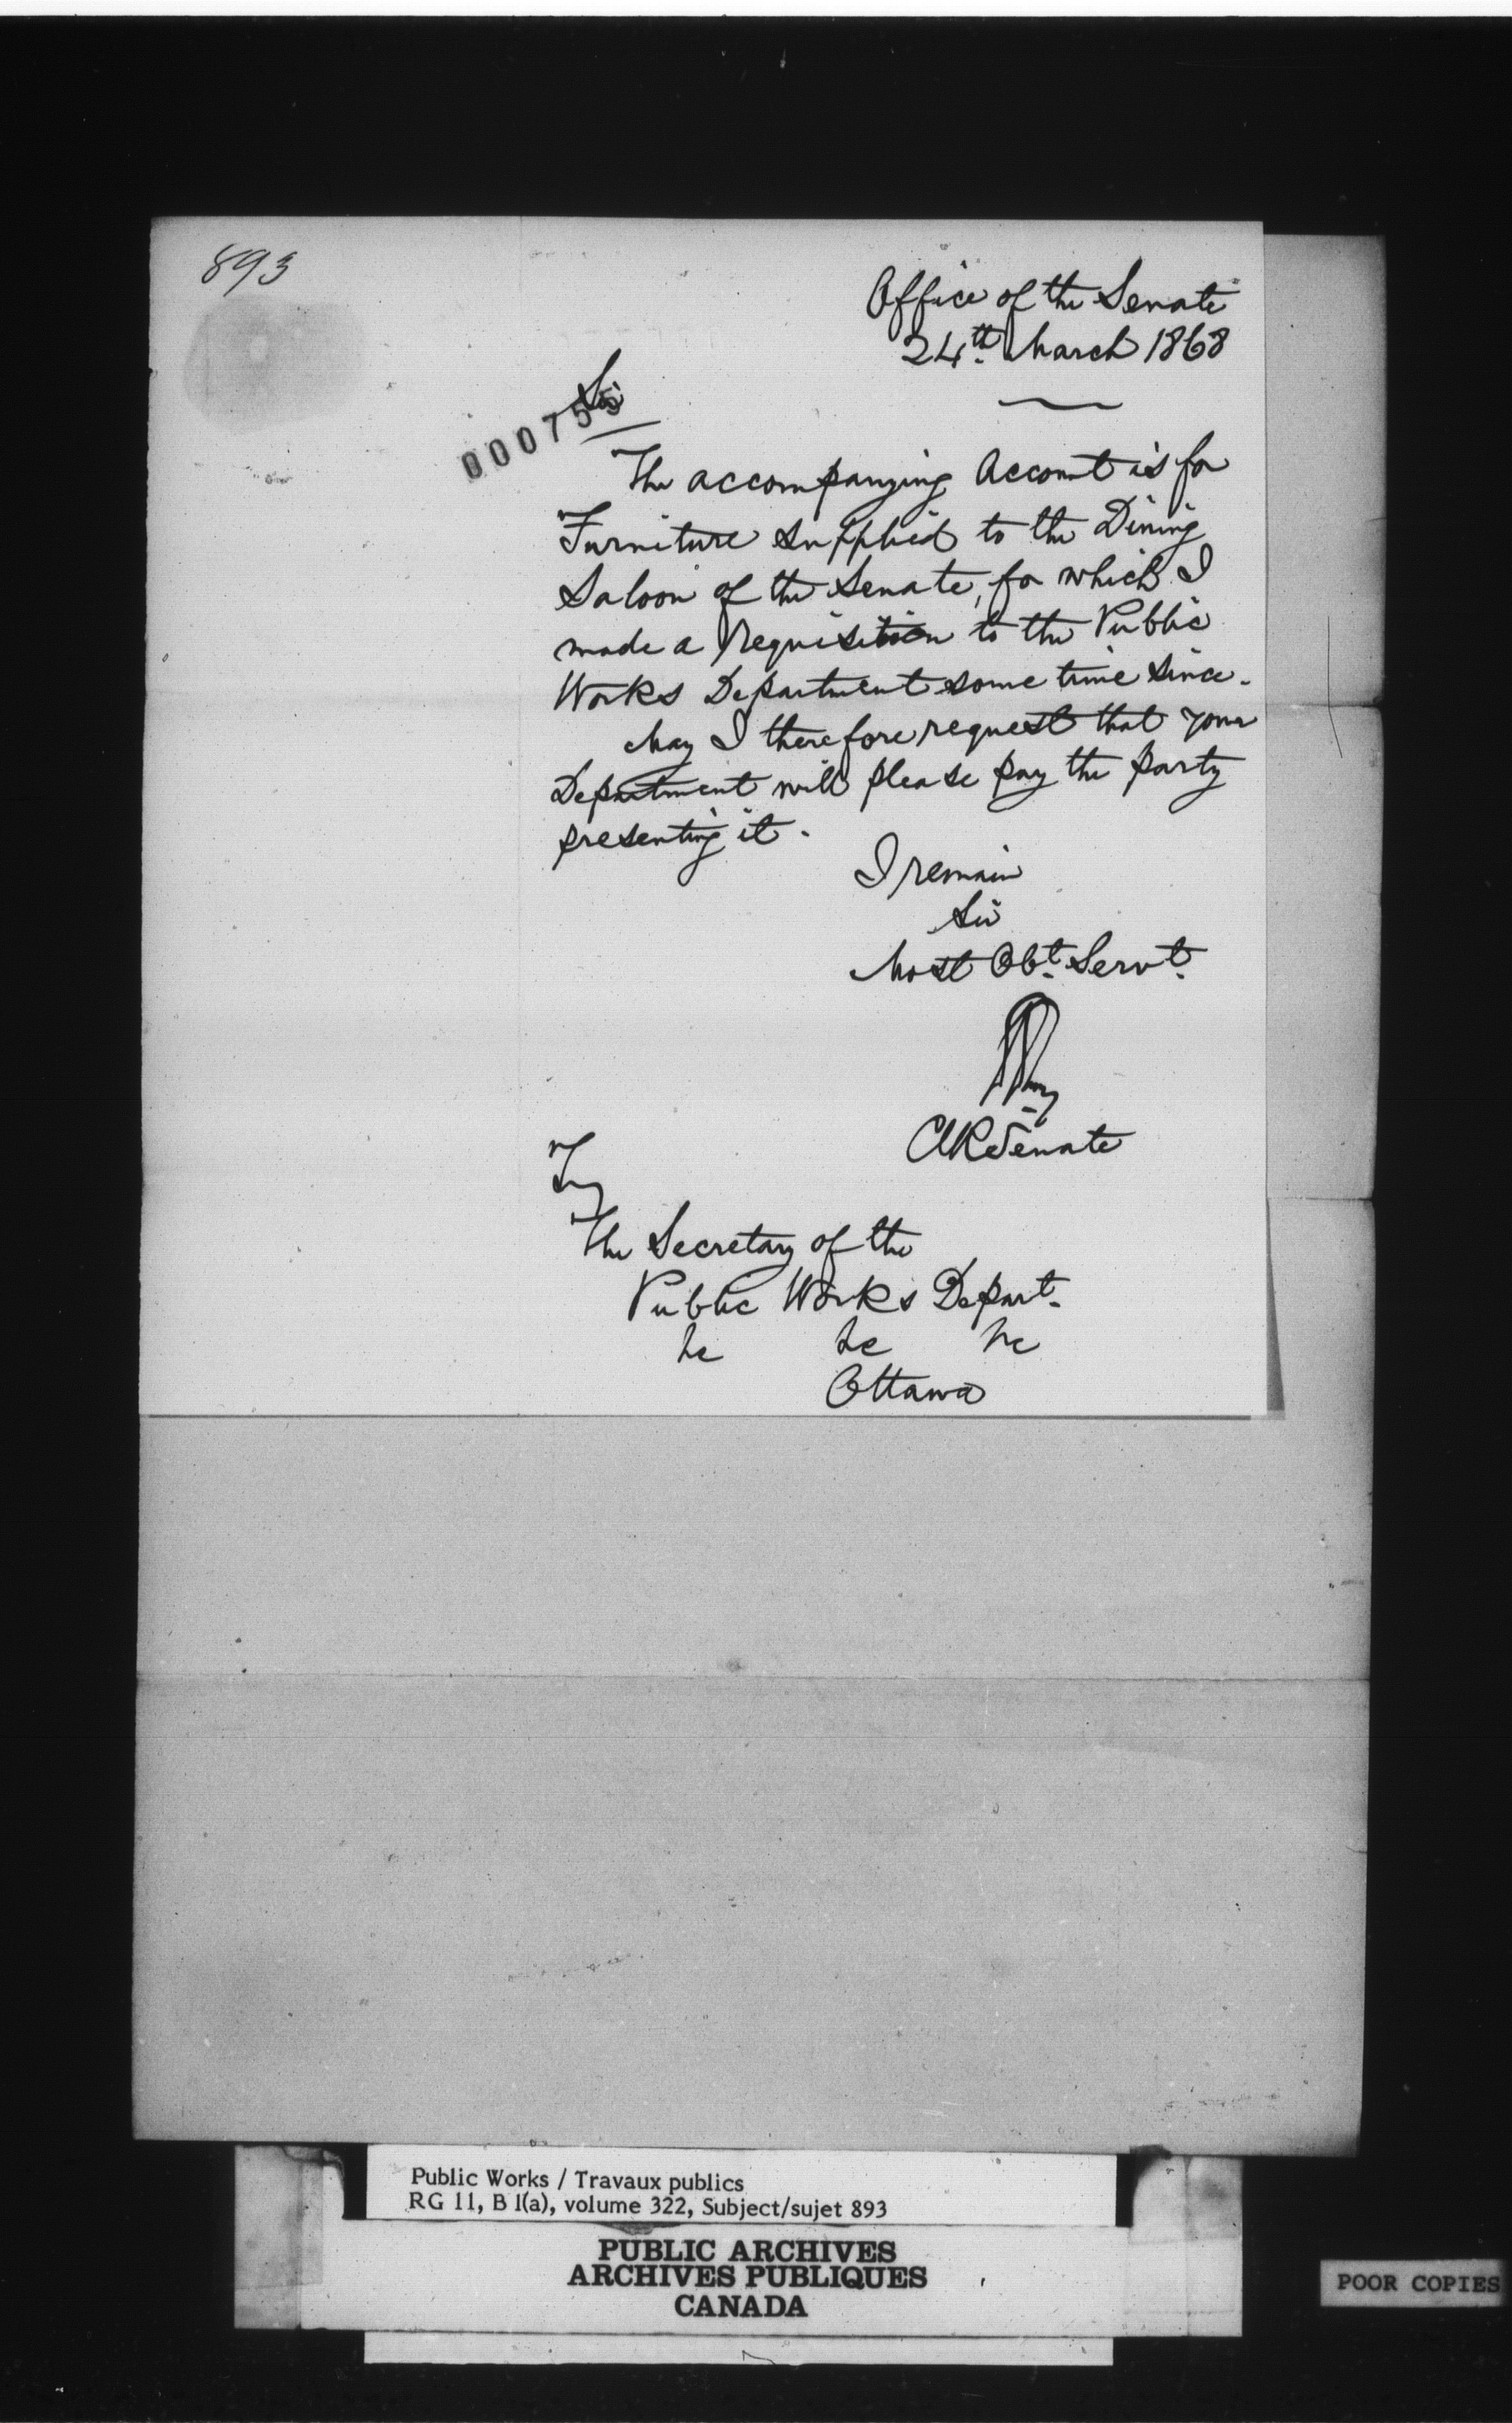 893
Office of the Senate
24th. March 1868
Sir
000755
The accompanying Account is for
Furniture supplied to the Dining
Saloon of the Senate, for which I
made a requisition to the Public
Works Department some time since.
May I therefore request that your
Department will please pay the party
presenting it.
I remain
Sir
Most Obt. Servt.
Clk Senate
To
The Secretary of the
Public Works Depart.
&c &c &c
Ottawa
Public Works / Travaux publics
RG 11, B 1(a), volume 322, Subject/sujet 893
PUBLIC ARCHIVES
ARCHIVES PUBLIQUES
CANADA
POOR COPIES